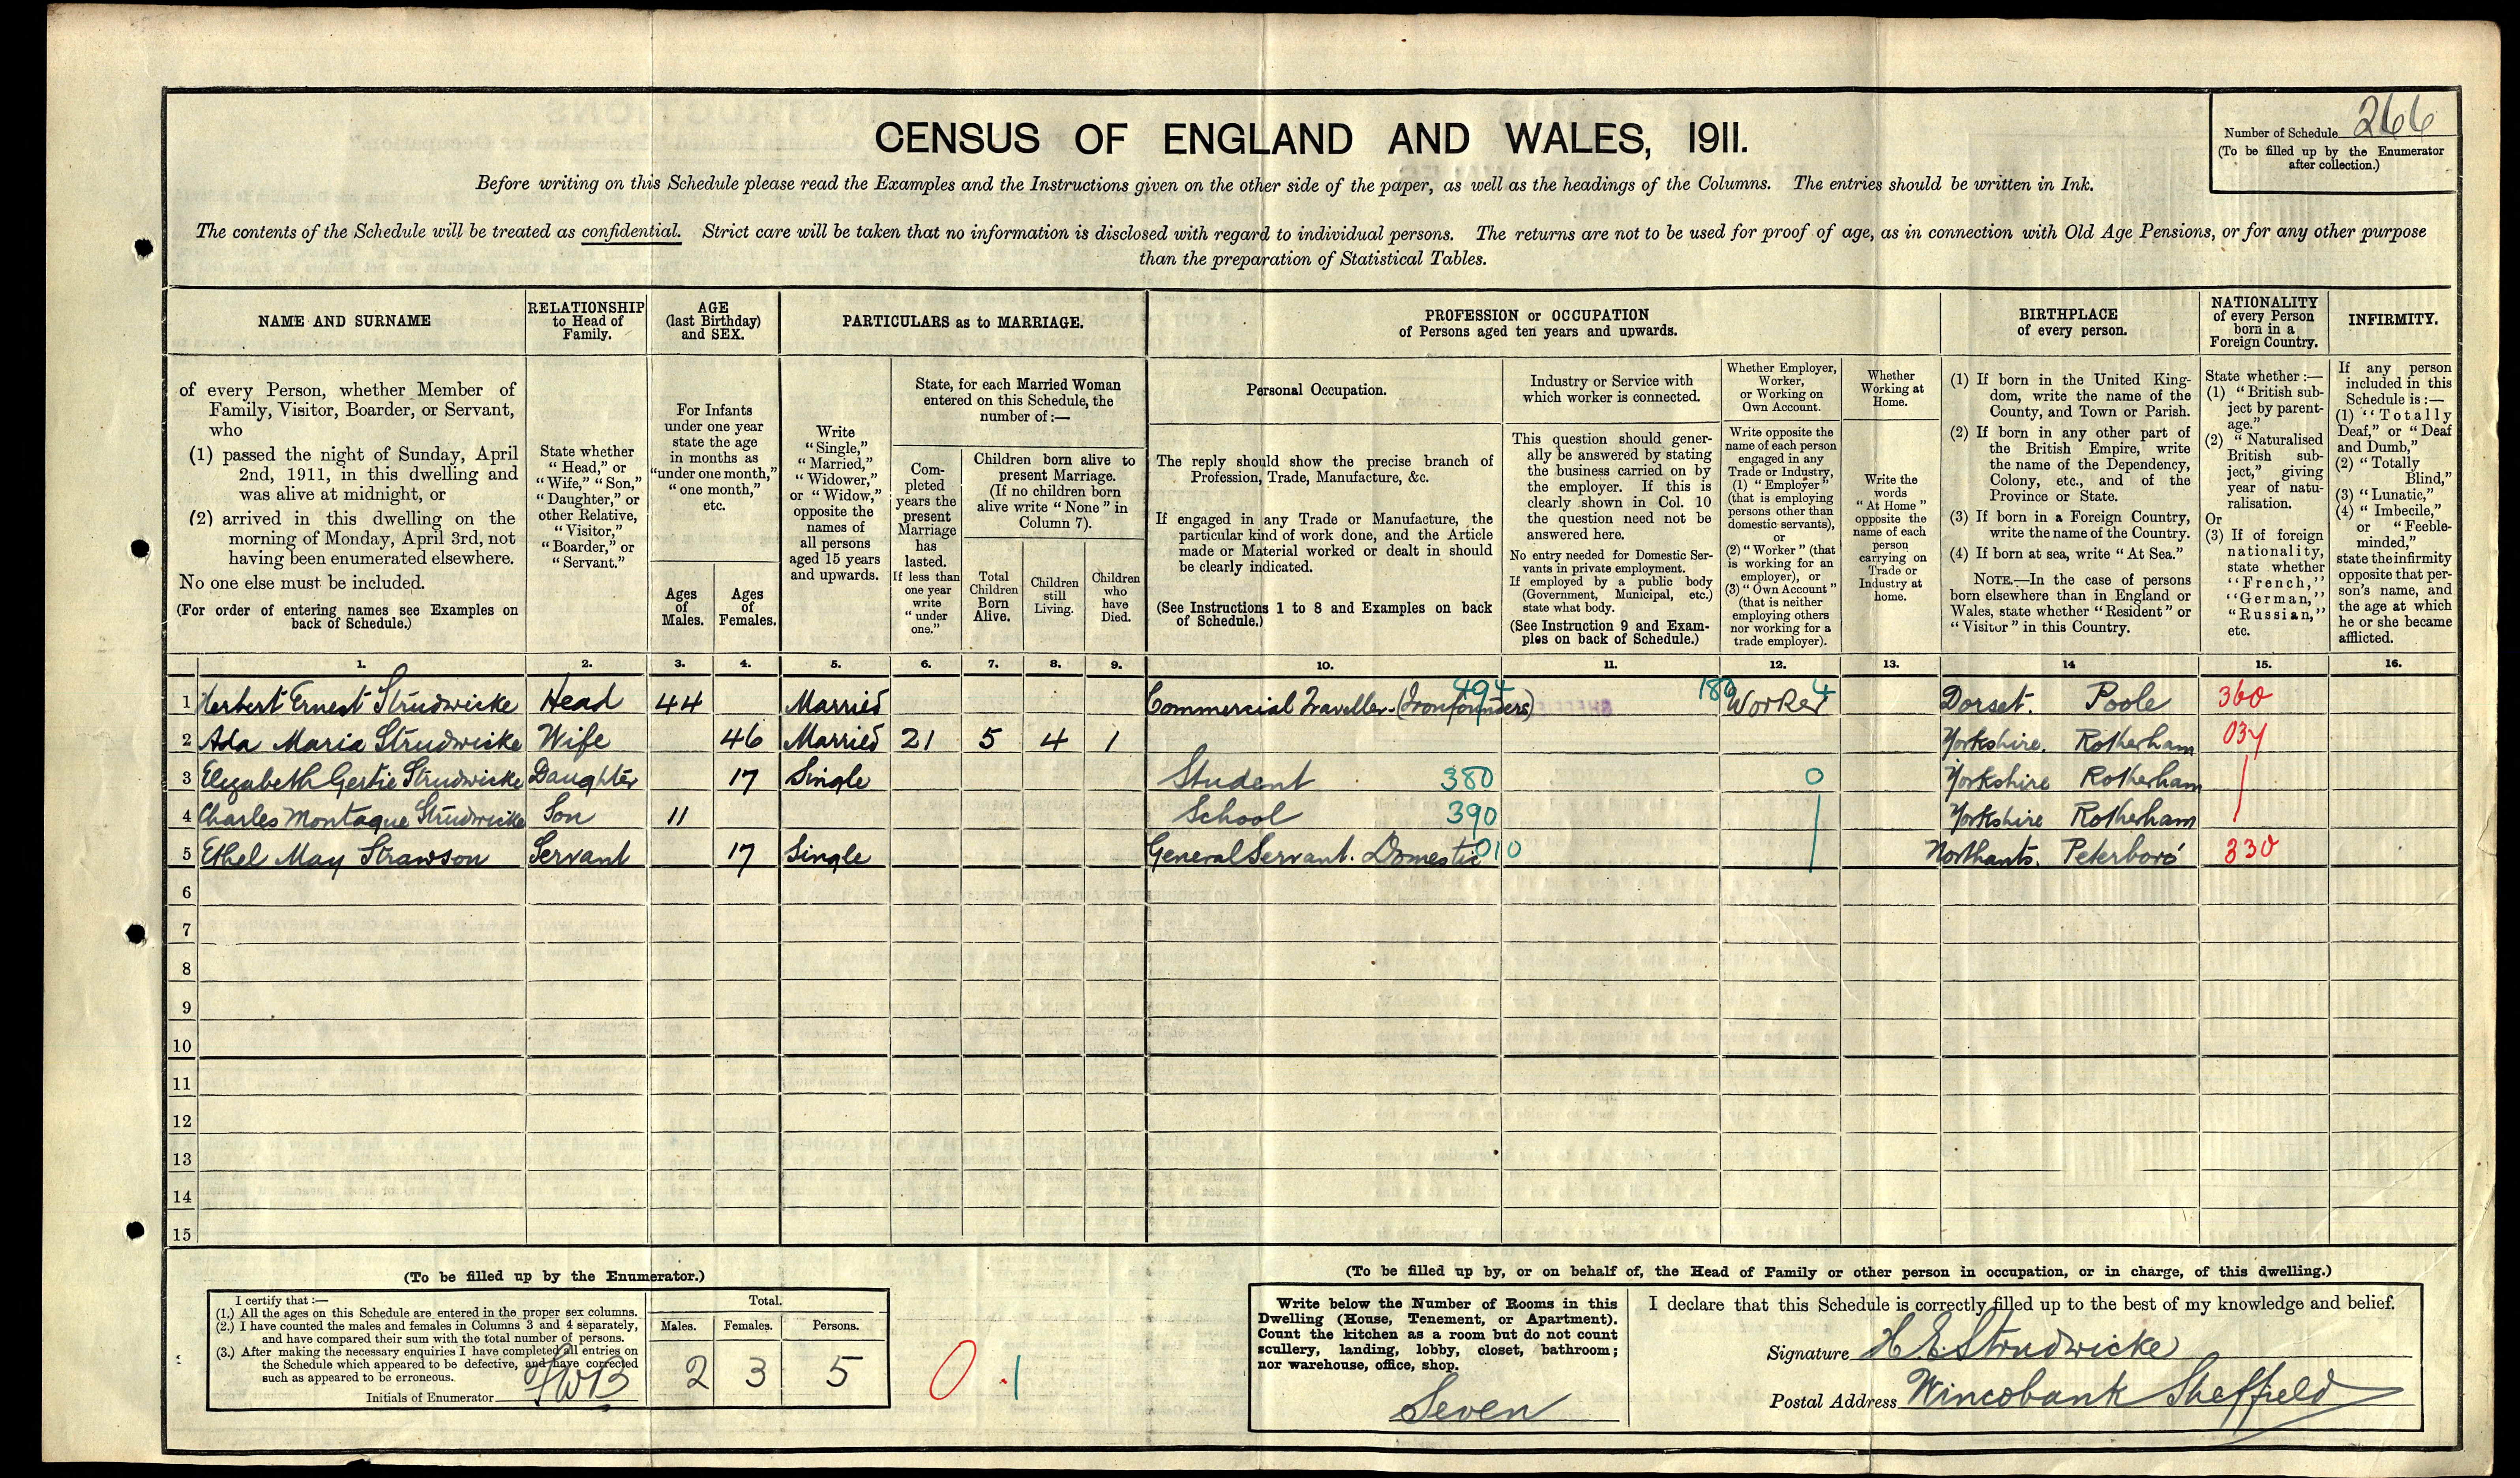 CENSUS OF ENGLAND AND WALES, 1911.
Number of Schedule 266
(To be filled up by the Enumerator
after collection.)
Before writing on this Schedule please read the Examples and the Instructions given on the other side of the paper, as well as the headings of the Columns. The entries should be written in Ink.
The contents of the Schedule will be treated as confidential. Strict care will be taken that no information is disclosed with regard to individual persons. The returns are not to be used for proof of age, as in connection with Old Age Pensions, or for any other purpose
than the preparation of Statistical Tables.
NAME AND SURNAME
of every Person, whether Member of
Family, Visitor, Boarder, or Servant,
who
(1) passed the night of Sunday, April
2nd, 1911, in this dwelling and
was alive at midnight, or
(2) arrived in this dwelling on the
morning of Monday, April 3rd, not
having been enumerated elsewhere.
No one else must be included.
(For order of entering names see Examples on
back of Schedule.)
RELATIONSHIP
to Head of
Family.
State whether
"Head," or
"Wife," "Son,"
"Daughter," or
other Relative,
"Visitor,"
"Boarder," or
"Servant."
AGE
(last Birthday)
and SEX.
For Infants
under one year
state the age
in months as
"under one month,"
"one month,"
etc.
Ages
of
Males.
Ages
of
Females.
PARTICULARS as to MARRIAGE.
Write
"Single,"
"Married,"
"Widower,"
or "Widow,"
opposite the
names of
all persons
aged 15 years
and upwards.
State, for each Married Woman
entered on this Schedule, the
number of:—
Com-
pleted
years the
present
Marriage
has
lasted.
If less than
one year
write
"under
one."
Children born alive to
present Marriage.
(If no children born
alive write "None" in
Column 7).
Total
Children
Born
Alive.
Children
still
Living.
Children
who
have
Died.
PROFESSION or OCCUPATION
of Persons aged ten years and upwards.
Personal Occupation.
The reply should show the precise branch of
Profession, Trade, Manufacture, &c.
If engaged in any Trade or Manufacture, the
particular kind of work done, and the Article
made or Material worked or dealt in should
be clearly indicated.
(See Instructions 1 to 8 and Examples on back
of Schedule.)
Industry or Service with
which worker is connected.
This question should gener-
ally be answered by stating
the business carried on by
the employer. If this is
clearly shown in Col. 10
the question need not be
answered here.
No entry needed for Domestic Ser-
vants in private employment.
If employed by a public body
(Government, Municipal, etc.)
state what body.
(See Instruction 9 and Exam-
ples on back of Schedule.)
Whether Employer,
Worker,
or Working on
Own Account.
Write opposite the
name of each person
engaged in any
Trade or Industry,
(1) "Employer"
(that is employing
persons other than
domestic servants),
or
(2) "Worker" (that
is working for an
employer), or
(3) "Own Account"
(that is neither
employing others
nor working for a
trade employer).
Whether
Working at
Home.
Write the
words
"At Home"
opposite the
name of each
person
carrying on
Trade or
Industry at
home.
BIRTHPLACE
of every person.
(1) If born in the United King-
dom, write the name of the
County, and Town or Parish.
(2) If born in any other part of
the British Empire, write
the name of the Dependency,
Colony, etc., and of the
Province or State.
(3) If born in a Foreign Country,
write the name of the Country.
(4) If born at sea, write "At Sea."
NOTE.—In the case of persons
born elsewhere than in England or
Wales, state whether "Resident" or
"Visitor" in this Country.
NATIONALITY
of every Person
born in a
Foreign Country.
State whether:—
(1) "British sub-
ject by parent-
age."
(2) "Naturalised
British sub-
ject," giving
year of natu-
ralisation.
Or
(3) If of foreign
nationality,
state whether
"French,"
"German,"
"Russian,"
etc.
INFIRMITY.
If any person
included in this
Schedule is:—
(1) "Totally
Deaf," or "Deaf
and Dumb,"
(2) "Totally
Blind,"
(3) "Lunatic,"
(4) "Imbecile,"
or "Feeble-
minded,"
state the infirmity
opposite that per-
son's name, and
the age at which
he or she became
afflicted.
1. 2. 3. 4. 5. 6. 7. 8. 9. 10. 11. 12. 13. 14 15. 16.
1 Herbert Ernest Strudwicke Head 44 Married Commercial Traveller (Ironfounders) 494 Worker 4 Dorset. Poole 360
2 Ada Maria Strudwicke Wife 46 Married 21 5 4 1 Yorkshire. Rotherham
3 Elizabeth Gertie Strudwicke Daughter 17 Single Student 380 0 Yorkshire Rotherham
4 Charles Montague Strudwicke Son 11 School 390 Yorkshire Rotherham
5 Ethel May Strawson Servant 17 Single General Servant. Domestic 010 Northants. Peterboro' 330
6
7
8
9
10
11
12
13
14
15
(To be filled up by the Enumerator.)
I certify that:—
(1.) All the ages on this Schedule are entered in the proper sex columns.
(2.) I have counted the males and females in Columns 3 and 4 separately,
and have compared their sum with the total number of persons.
(3.) After making the necessary enquiries I have completed all entries on
the Schedule which appeared to be defective, and have corrected
such as appeared to be erroneous.
Initials of Enumerator
Total.
Males. Females. Persons.
2 3 5
0 .1
(To be filled up by, or on behalf of, the Head of Family or other person in occupation, or in charge, of this dwelling.)
Write below the Number of Rooms in this
Dwelling (House, Tenement, or Apartment).
Count the kitchen as a room but do not count
scullery, landing, lobby, closet, bathroom;
nor warehouse, office, shop.
Seven
I declare that this Schedule is correctly filled up to the best of my knowledge and belief.
Signature H. E. Strudwicke
Postal Address Wincobank Sheffield